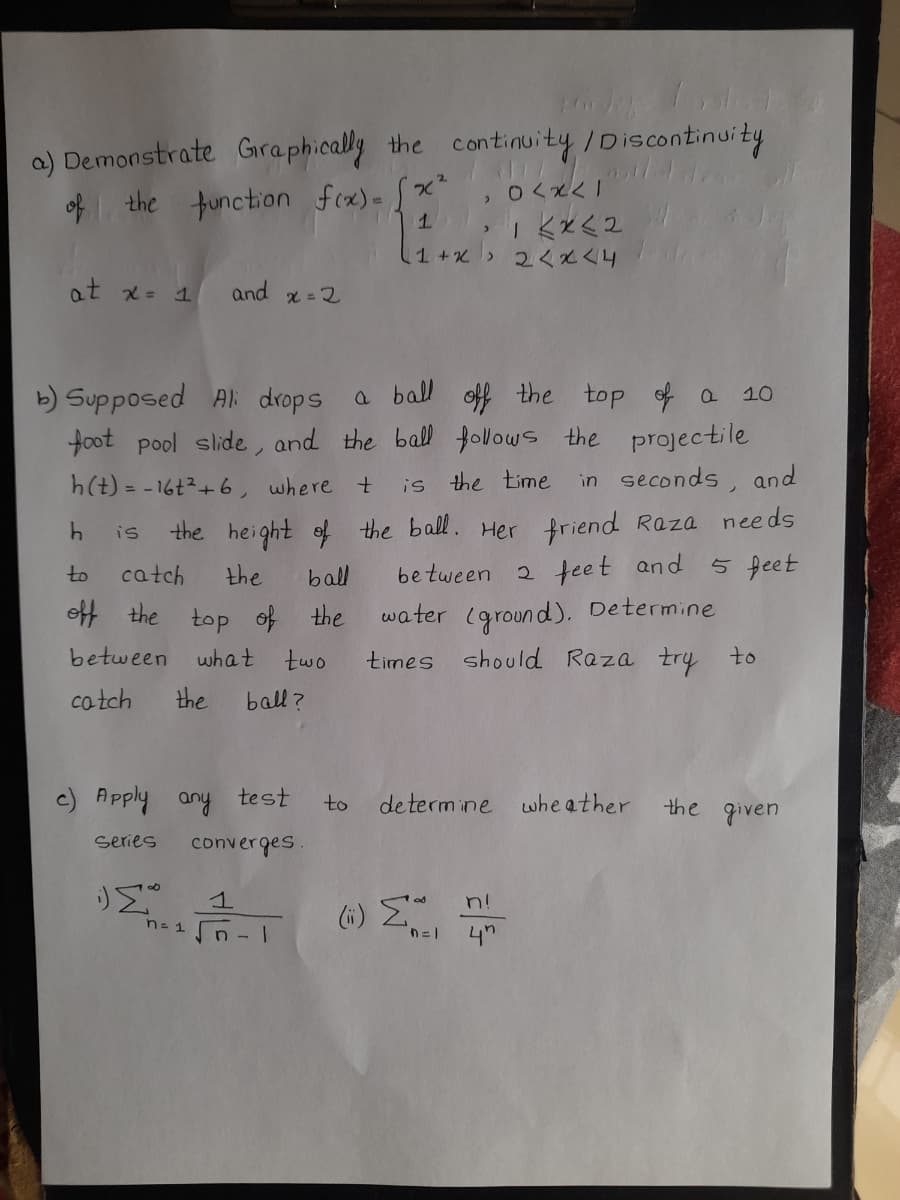 a) Demonstrate Graphically the continuity / Discontinuity
of the function f(x) = { x² , 0<x<1
1 , 1 ⩽x⩽2
1+x , 2<x<4
at x = 1 and x = 2
b) Supposed Ali drops a ball off the top of a 10
foot pool slide, and the ball follows the projectile
h(t) = -16t²+6, where t is the time in seconds, and
h is the height of the ball. Her friend Raza needs
to catch the ball between 2 feet and 5 feet
off the top of the water (ground). Determine
between what two times should Raza try to
catch the ball?
c) Apply any test to determine wheather the given
series converges.
i) ∑_{n=1}^{∞} 1/(√n - 1) (ii) ∑_{n=1}^{∞} n!/4ⁿ